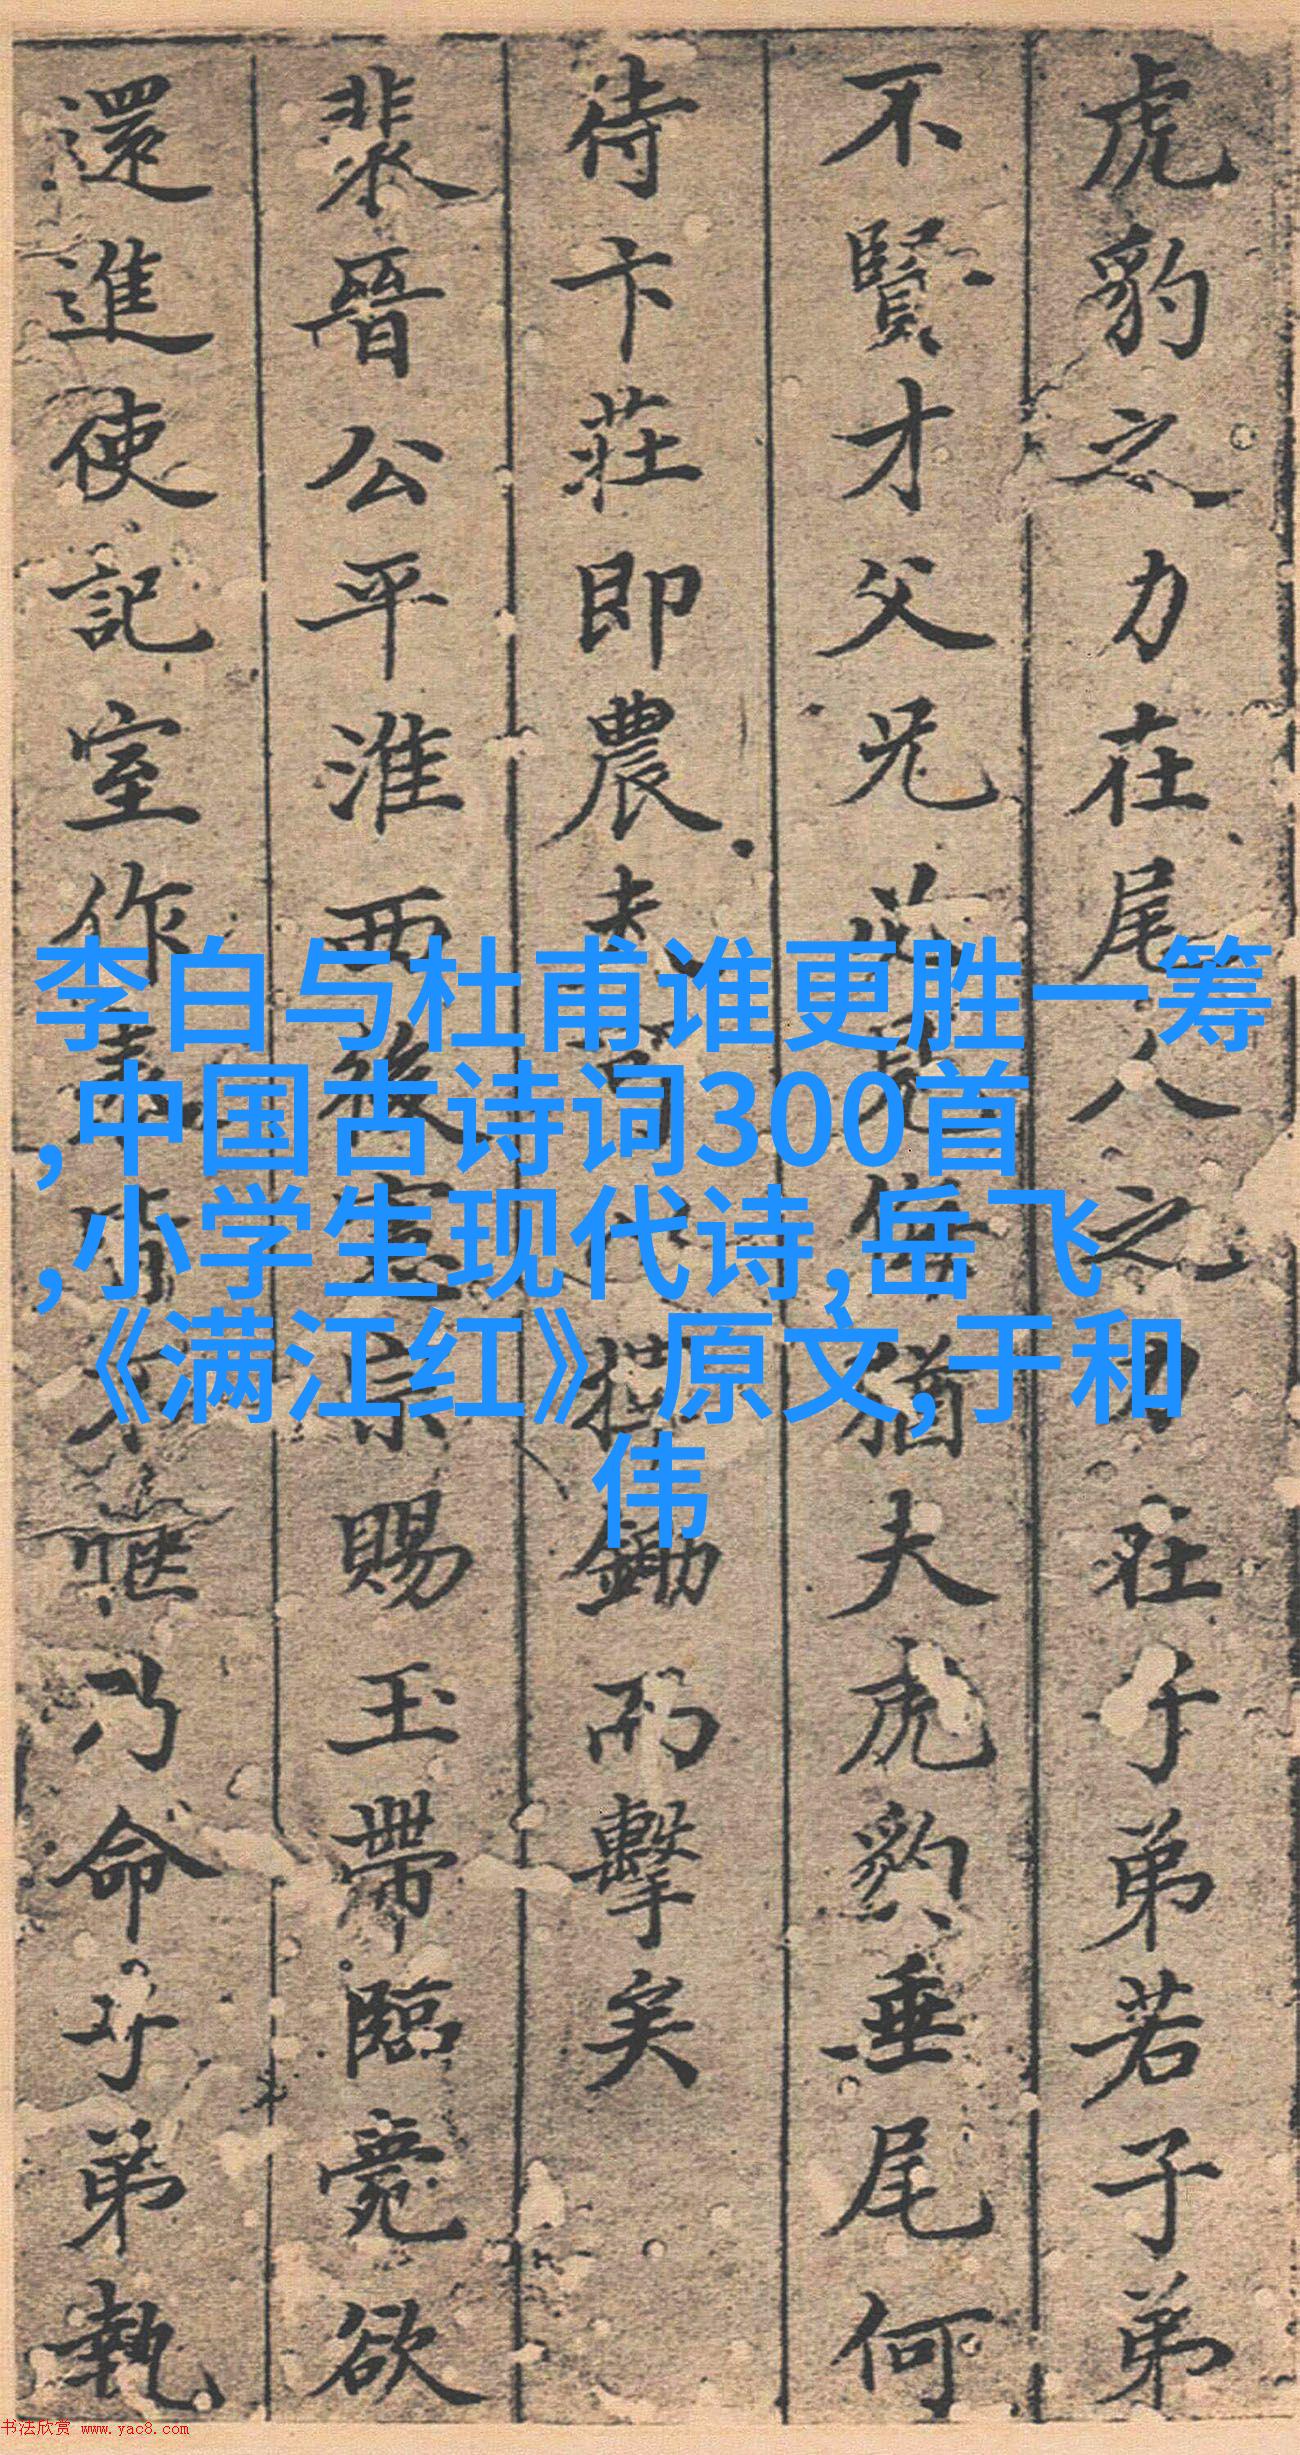 虎豹之力在尾人之力在子弟若子弟
不賢才父兄必見侮猶夫虎豹垂尾何
待卞莊即農夫可以橫鋤而擊矣
裴晉公平淮西後憲宗賜玉帶臨薨欲
還進使記室作表皆不愜乃命子弟執
李白与杜甫谁更胜一筹
,中国古诗词300首
,小学生现代诗,岳飞
《满江红》原文,于和
伟
书法欣赏 www.yac8.com